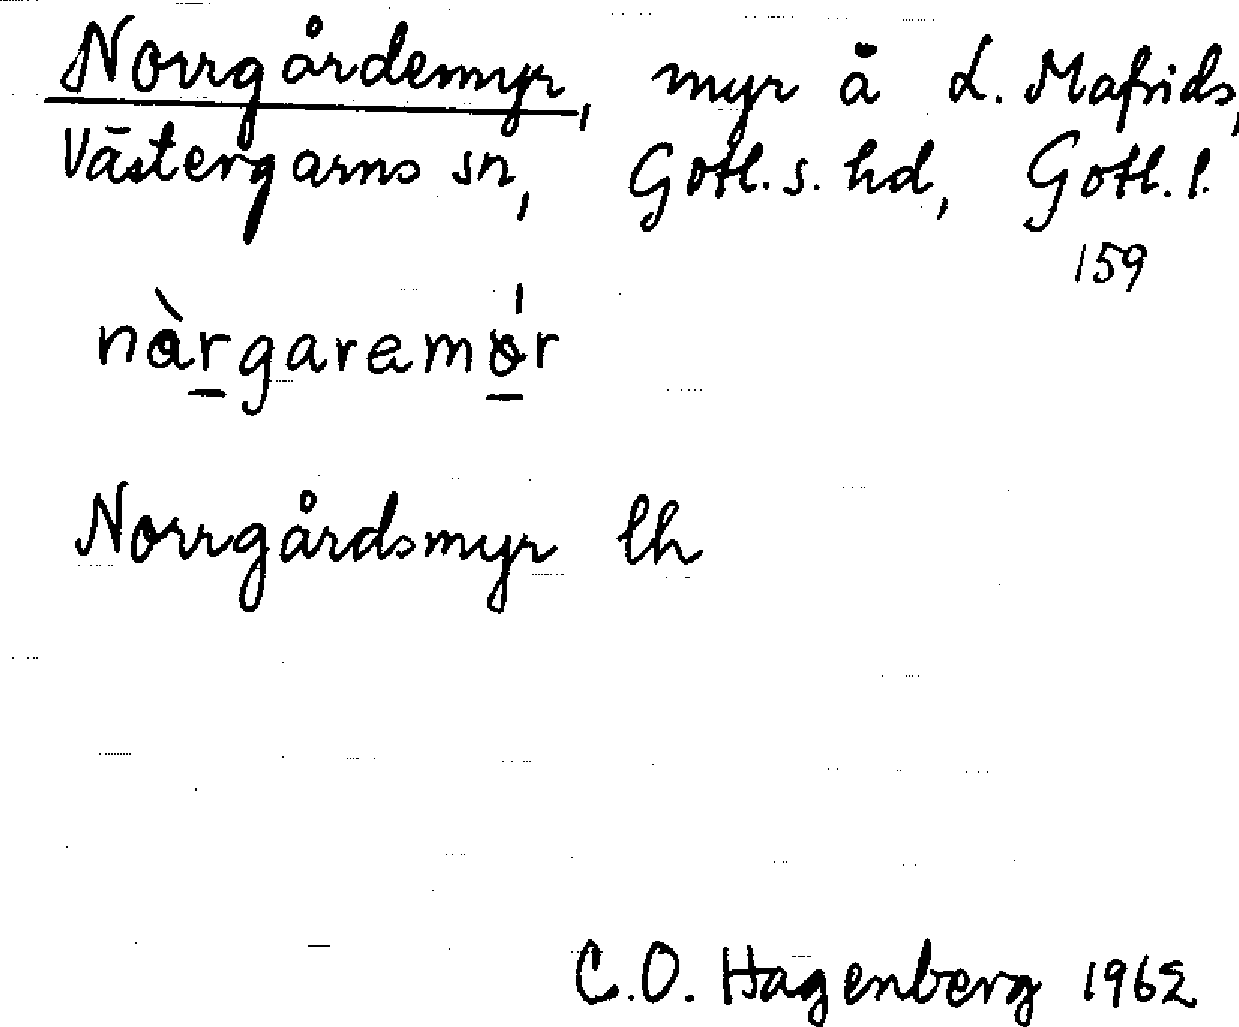 Norrgårdemyr, myr å L. Mafrids,
Västergarns sn, Gotl. s. hd, Gotl. l.
159
nàrgaremǿr
Norrgårdsmyr lh
C.O. Hagenberg 1962